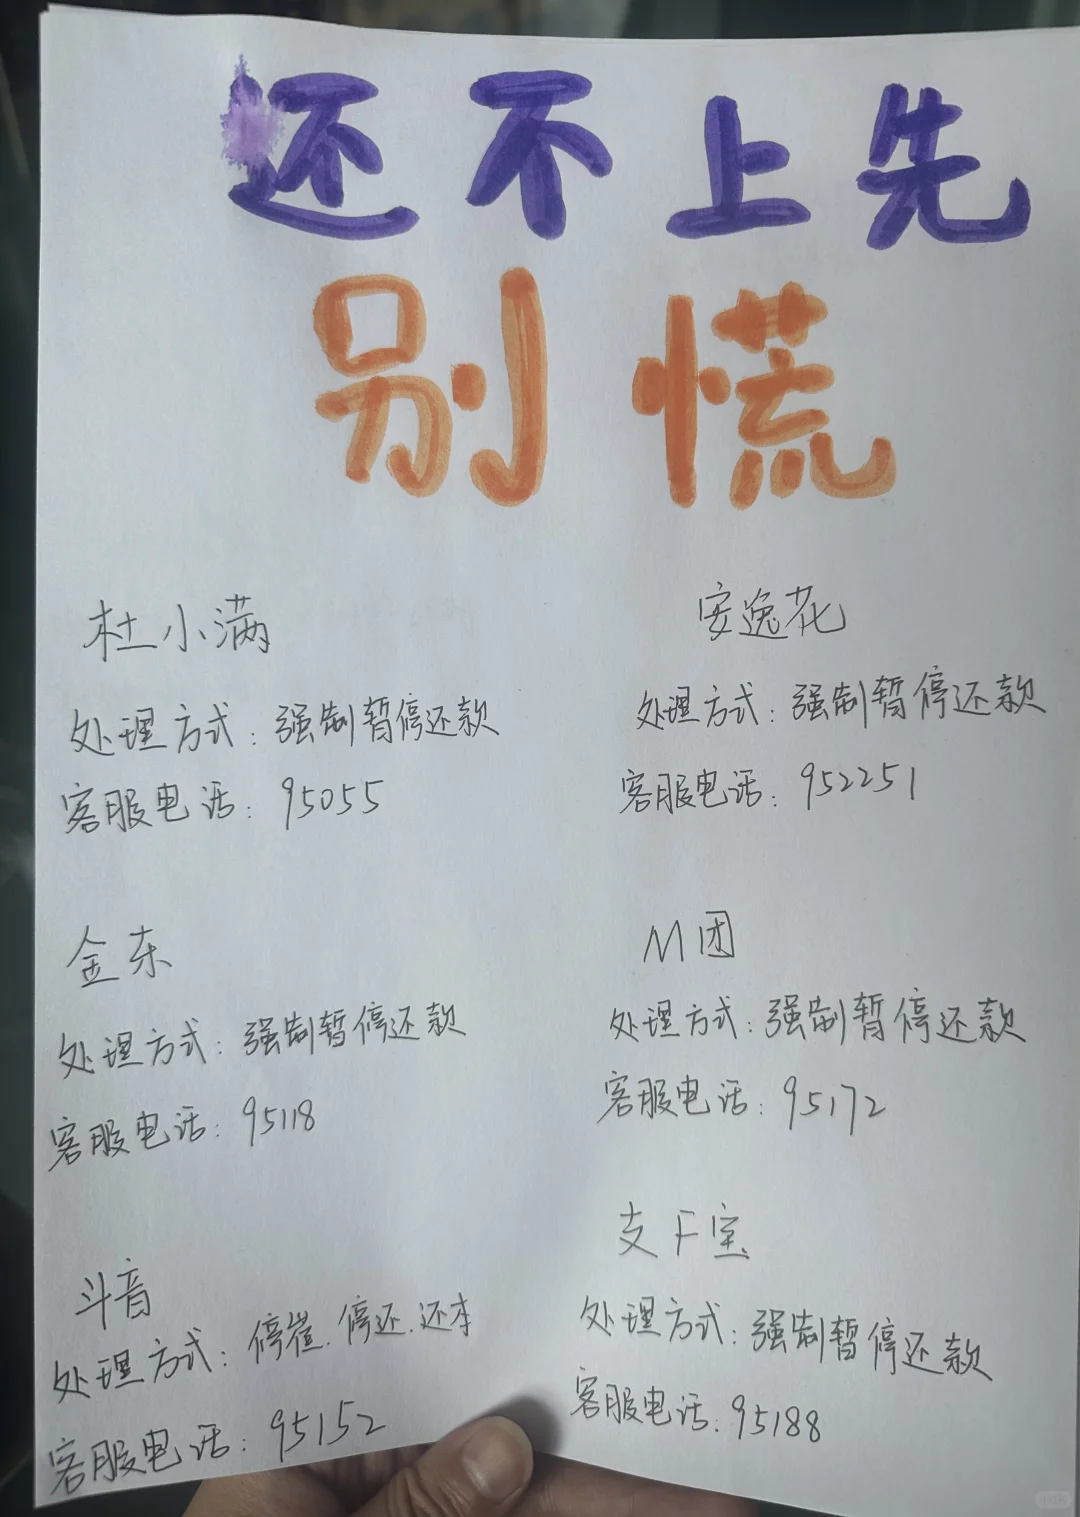 还不上先
别慌
杜小满
处理方式：强制暂停还款
客服电话：95055
安逸花
处理方式：强制暂停还款
客服电话：952251
金东
处理方式：强制暂停还款
客服电话：95118
M团
处理方式：强制暂停还款
客服电话：95172
斗音
处理方式：停崔.停还.还本
客服电话：95152
支F宝
处理方式：强制暂停还款
客服电话：95188